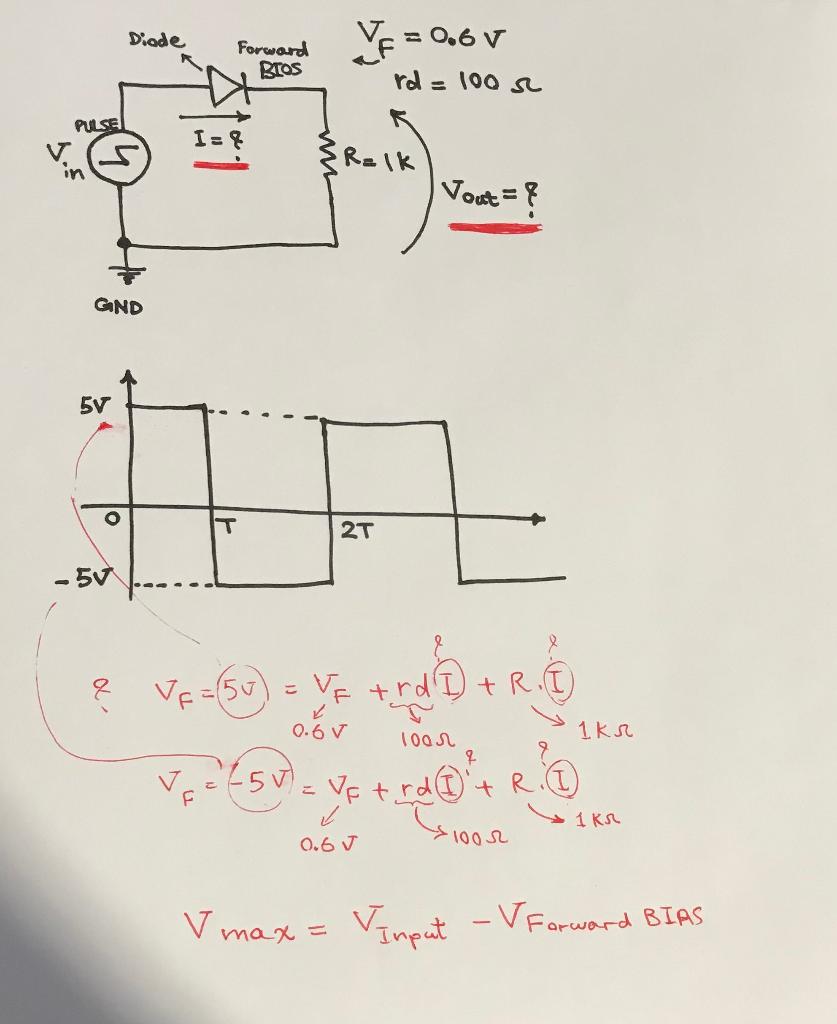 Diode
Forward
BIOS
V_F = 0.6 V
rd = 100 Ω
PULSE
V in
I = ?
R = 1K
Vout = ?
GND
5V
0
T
2T
-5V
? V_F = 5V = V_F + rd I + R. I
? ?
0.6 V
100Ω
1KΩ
V_F = -5V = V_F + rd I + R. I
? ?
0.6 V
100Ω
1KΩ
V max = V Input - V Forward BIAS